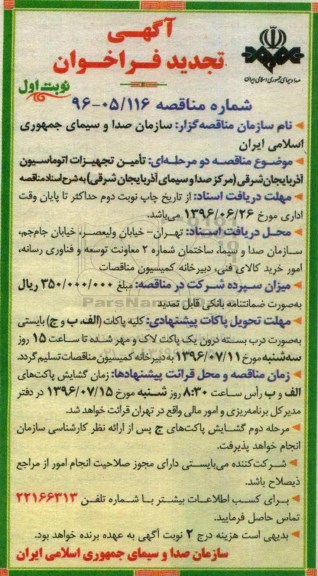 آگهی
تجدید فراخوان
صدا و سیمای جمهوری اسلامی ایران
نوبت اول
شماره مناقصه ۹۶-۰۵/۱۱۶
نام سازمان مناقصه‌گزار: سازمان صدا و سیمای جمهوری
اسلامی ایران
موضوع مناقصه دو مرحله‌ای: تأمین تجهیزات اتوماسیون
آذربایجان شرقی (مرکز صدا و سیمای آذربایجان شرقی) به شرح اسناد مناقصه
مهلت دریافت اسناد: از تاریخ چاپ نوبت دوم حداکثر تا پایان وقت
اداری مورخ ۱۳۹۶/۰۶/۲۶ می‌باشد.
محل دریافت اسناد: تهران- خیابان ولیعصر، خیابان جام‌جم،
سازمان صدا و سیما، ساختمان شماره ۲ معاونت توسعه و فناوری رسانه،
امور خرید کالای فنی، دبیرخانه کمیسیون مناقصات
میزان سپرده شرکت در مناقصه: مبلغ ۳۵۰/۰۰۰/۰۰۰ ریال
به‌صورت ضمانتنامه بانکی قابل تمدید
مهلت تحویل پاکات پیشنهادی: کلیه پاکات (الف، ب و ج) بایستی
به‌صورت درب بسته درون یک پاکت لاک و مهر شده تا ساعت ۱۵ روز
سه‌شنبه مورخ ۱۳۹۶/۰۷/۱۱ به دبیرخانه کمیسیون مناقصات تسلیم گردد.
زمان مناقصه و محل قرائت پیشنهادها: زمان گشایش پاکت‌های
الف و ب رأس ساعت ۸:۳۰ روز شنبه مورخ ۱۳۹۶/۰۷/۱۵ در دفتر
مدیر کل برنامه‌ریزی و امور مالی واقع در تهران قرائت خواهد شد.
مرحله دوم گشایش پاکت‌های ج پس از ارائه نظر کارشناسی سازمان
انجام خواهد پذیرفت.
شرکت‌کننده می‌بایستی دارای مجوز صلاحیت انجام امور از مراجع
ذیصلاح باشد.
برای کسب اطلاعات بیشتر با شماره تلفن ۲۲۱۶۶۳۱۳
تماس حاصل فرمایید.
بدیهی است هزینه درج ۲ نوبت آگهی به عهده برنده خواهد بود.
سازمان صدا و سیمای جمهوری اسلامی ایران